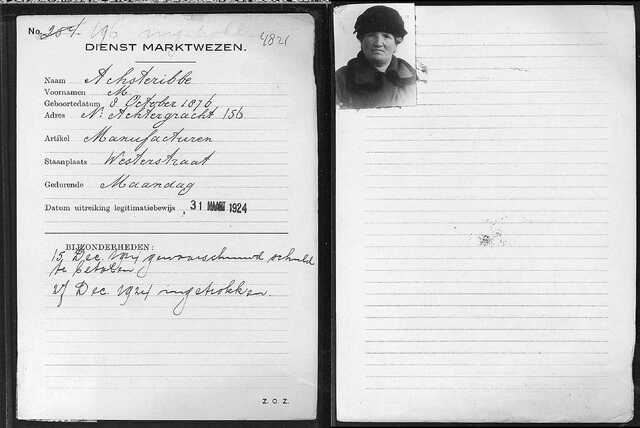 No. 284 196 ingetr
4821
DIENST MARKTWEZEN.
Naam Achsteribbe
Voornamen M.
Geboortedatum 8 October 1876
Adres N: Achtergracht 156
Artikel Manufacturen
Staanplaats Westerstraat
Gedurende Maandag
Datum uitreiking legitimatiebewijs , 31 MAART 1924
BIJZONDERHEDEN:
15 Dec. 1924 gewaarschuwd schuld
te betalen
27 Dec. 1924 ingetrokken.
Z. O. Z.